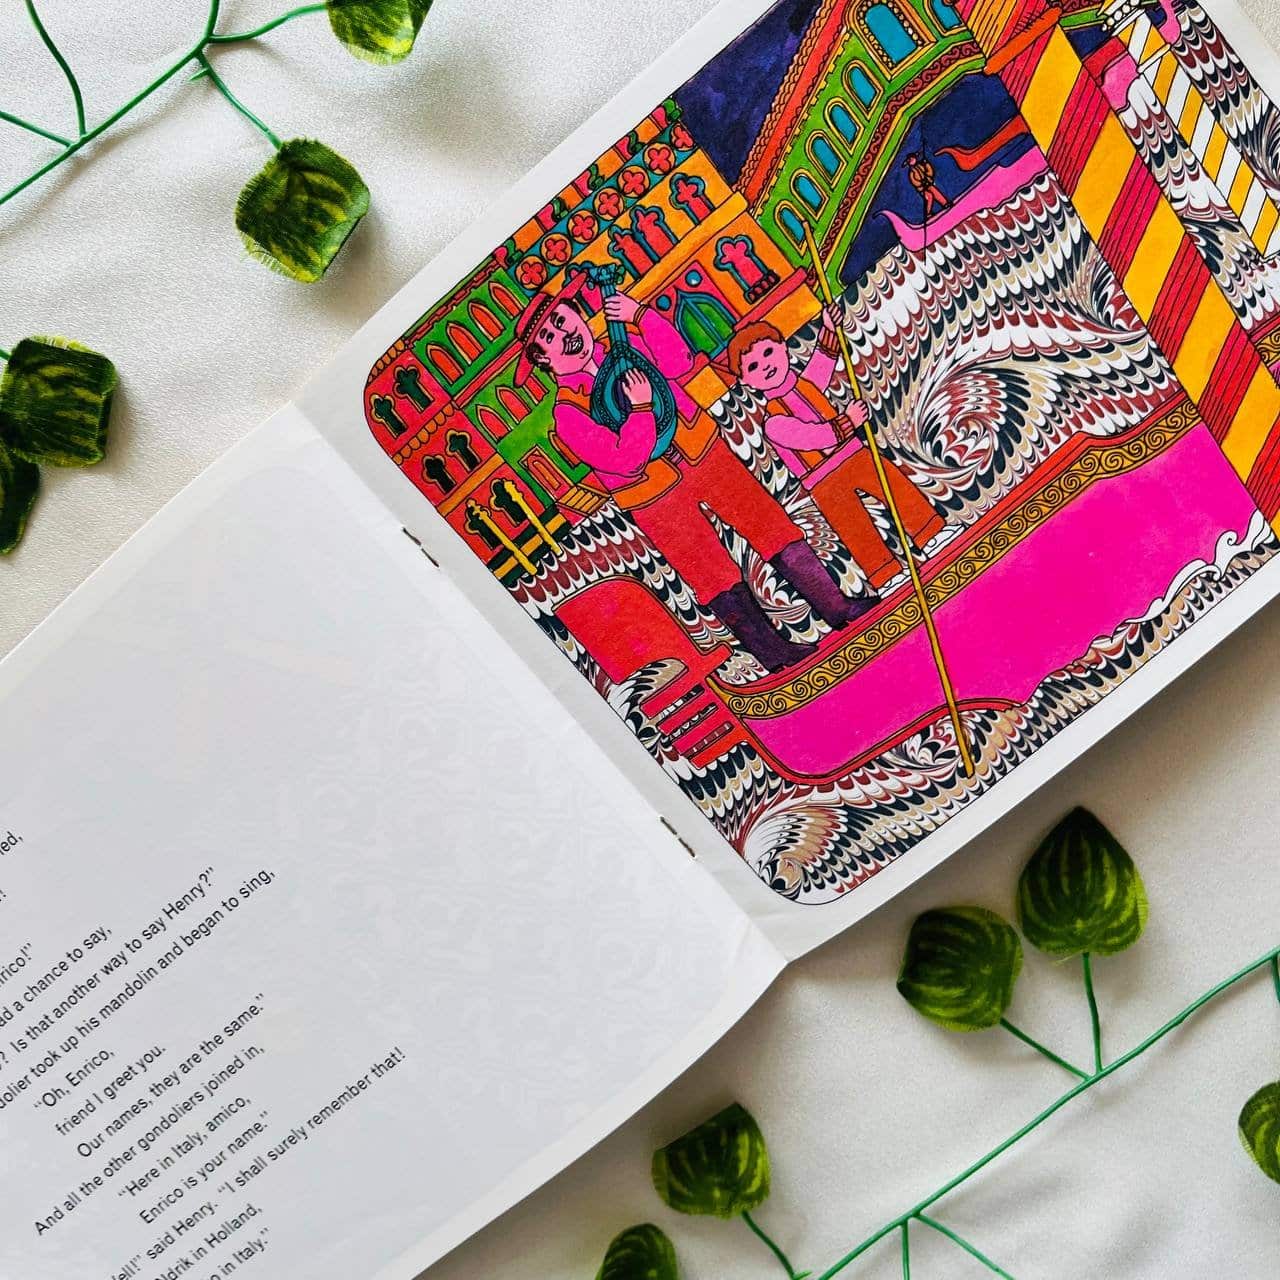 !"
had a chance to say,
Is that another way to say Henry?"
took up his mandolin and began to sing,
"Oh, Enrico,
friend I greet you.
Our names, they are the same."
And all the other gondoliers joined in,
"Here in Italy, amico,
Enrico is your name."
said Henry. "I shall surely remember that!
in Holland,
in Italy."